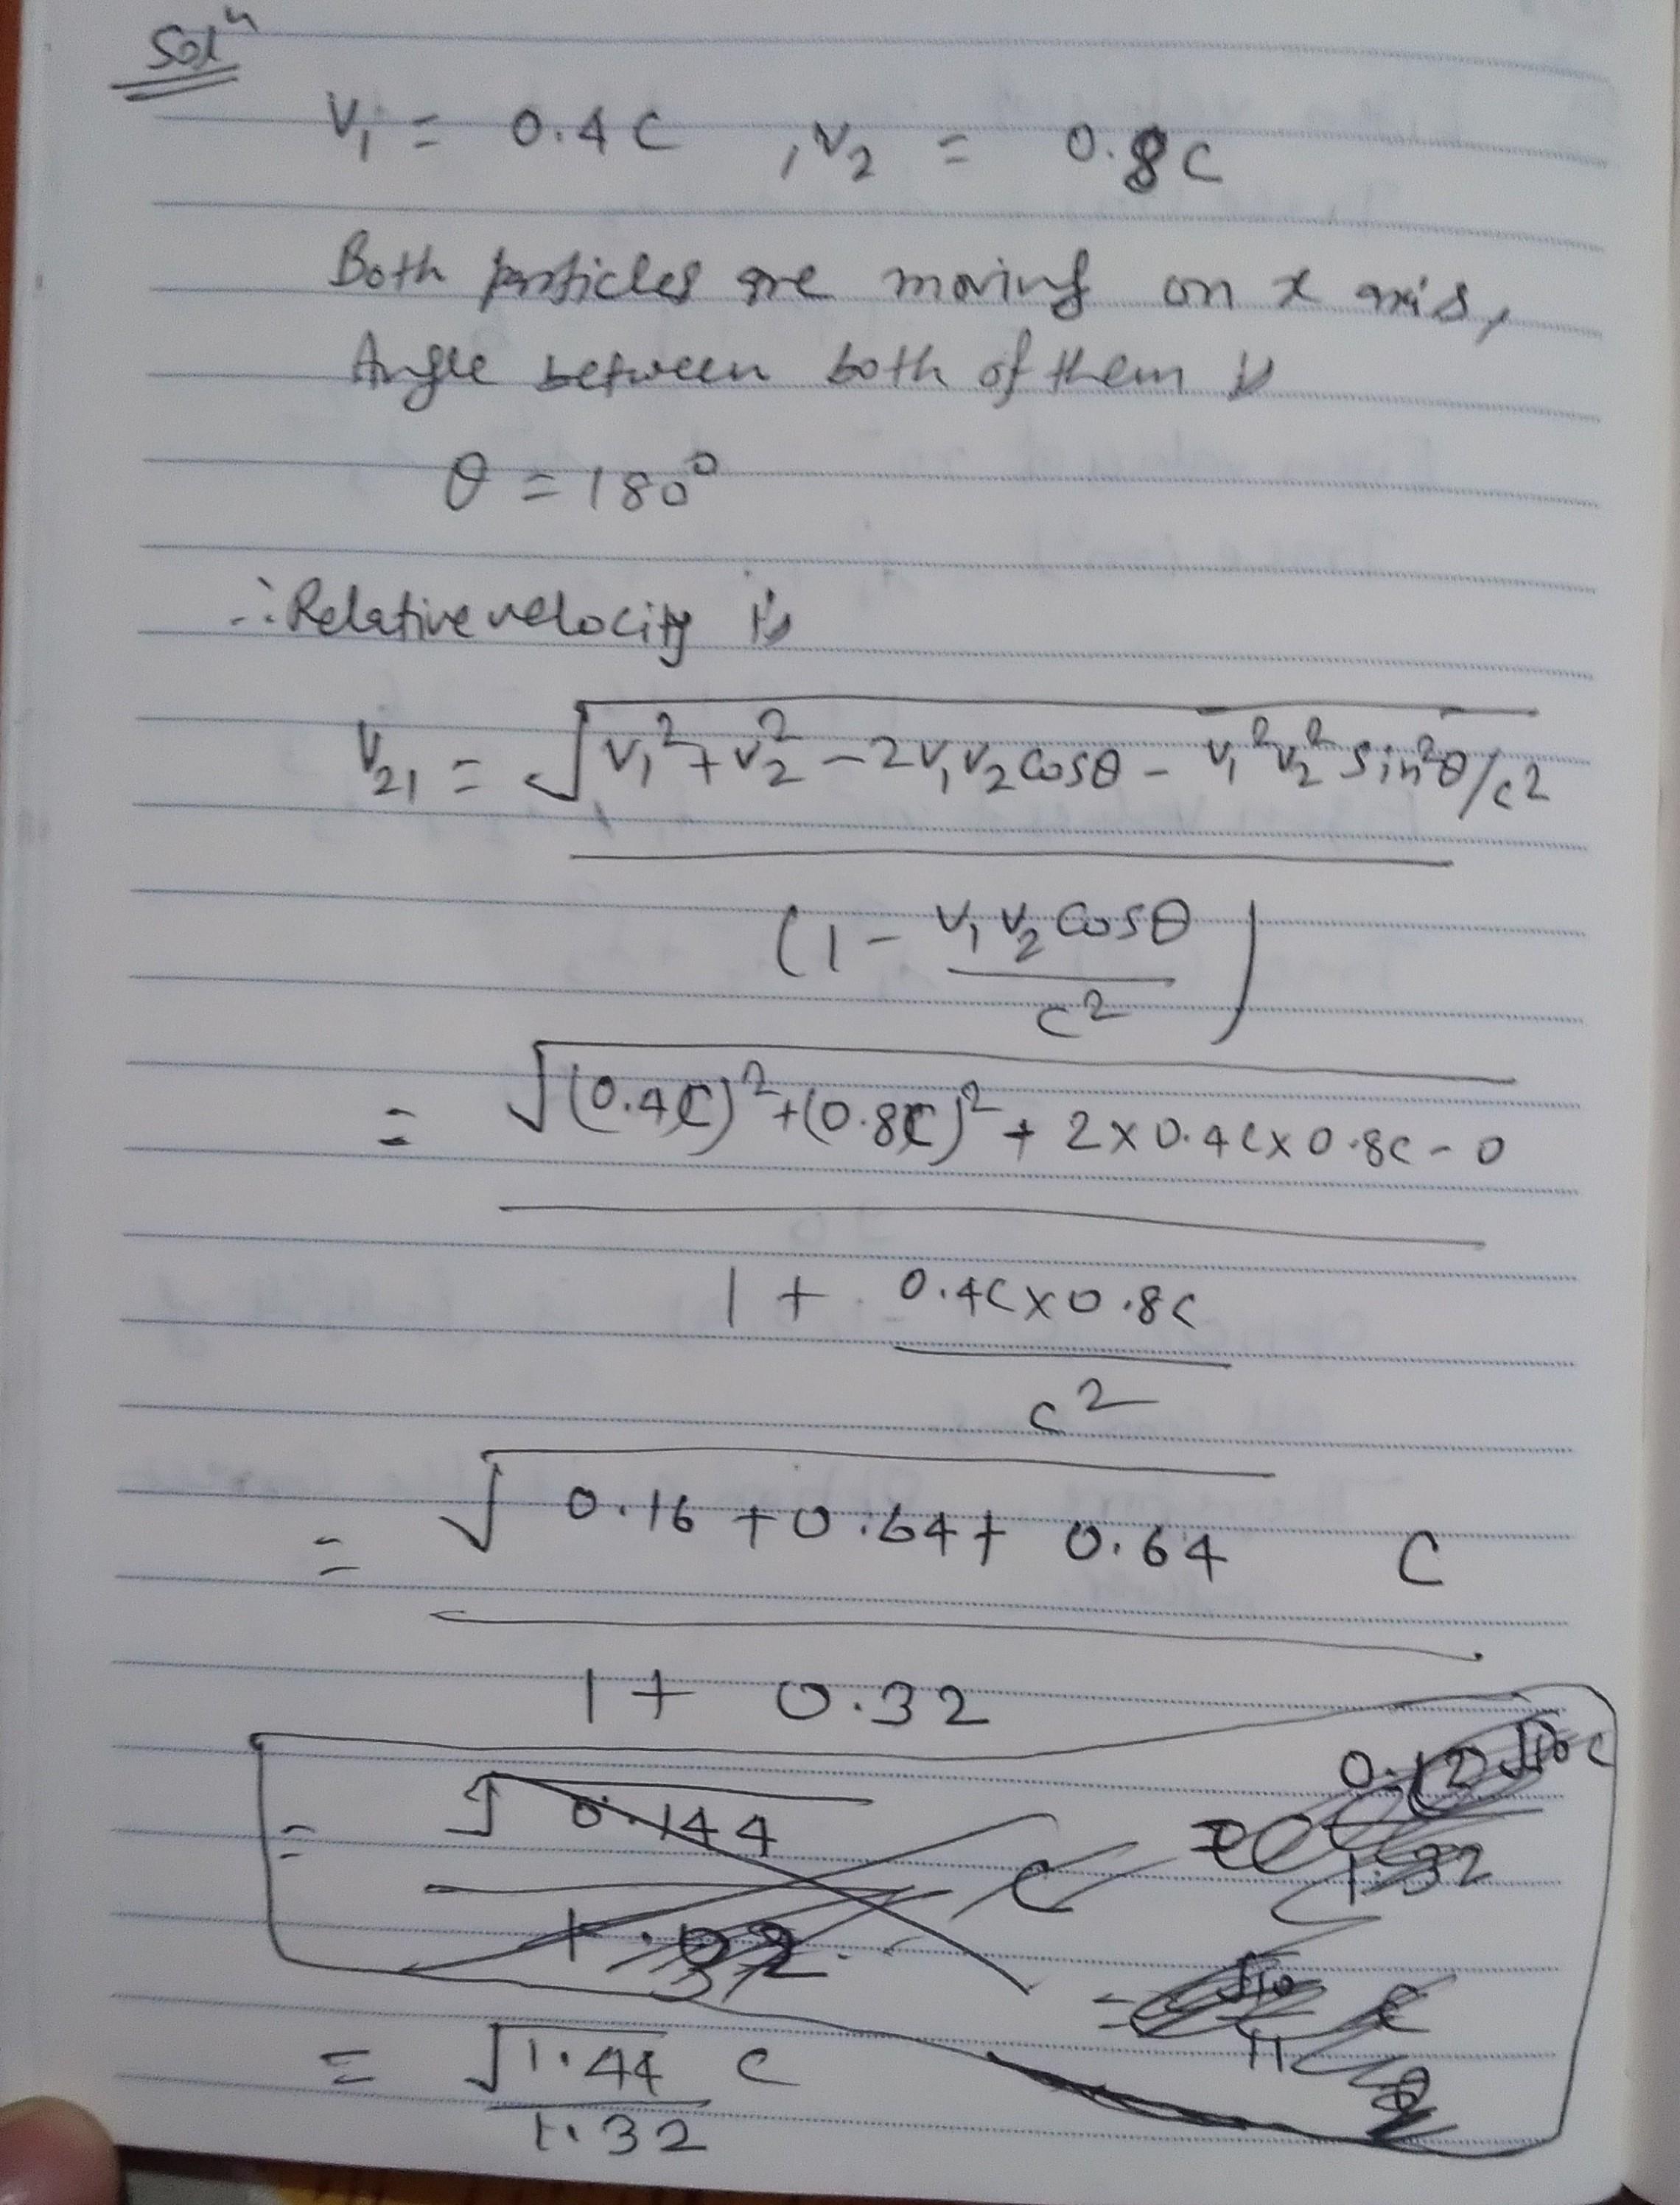 Solⁿ
V₁ = 0.4C , V₂ = 0.8C
Both particles are moving on x axis,
Angle between both of them is
θ = 180°
∴ Relative velocity is
V₂₁ = √(V₁² + V₂² - 2V₁V₂ cosθ - V₁²V₂² sin²θ/c²)
(1 - V₁V₂ cosθ / c²)
= √((0.4C)² + (0.8C)² + 2 × 0.4C × 0.8C - 0)
1 + 0.4C × 0.8C
c²
= √(0.16 + 0.64 + 0.64) C
1 + 0.32
= √0.144 C
0.12 √10 C
1.32
= √1.44 C
1.32